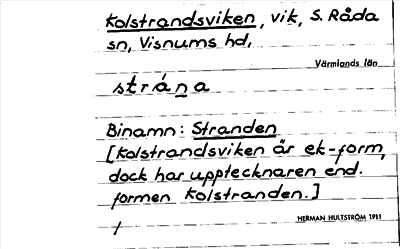 Kolstrandsviken, vik, S. Råda
sn, Visnums hd,
Värmlands län
strána
Binamn: Stranden
[Kolstrandsviken är ek-form,
dock har upptecknaren end.
formen Kolstranden.]
HERMAN HULTSTRÖM 1911
/